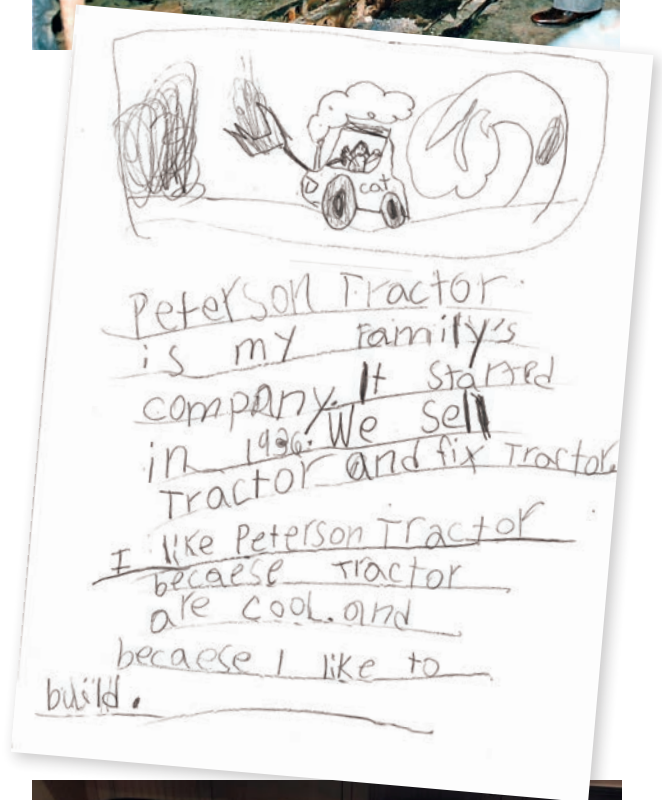 cat
Peterson Tractor
is my Family's
company. It started
in 1936. We Sell
Tractor and fix Tractor.
I like Peterson Tractor
becaese Tractor
are cool. and
becaese I like to
build.